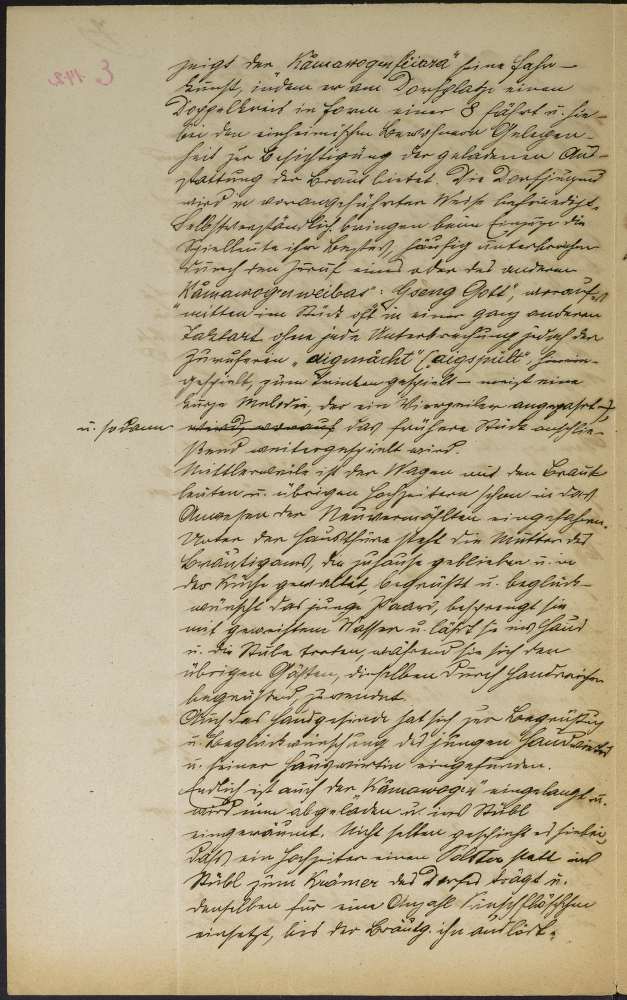 E 142.
zeigt der „Kåmawognfüara" seine Fahr-
kunst, indem er am Dorfplatze einen
Doppelkreis in Form einer 8 fährt u. hie-
bei den einheimischen Bewohnern Gelegen-
heit zur Besichtigung der geladenen Aus-
stattung der Braut bietet. Die Dorfjugend
wird in vorangeführter Weise befriedigt.
Selbstverständlich bringen beim Einzuge die
Spielleute ihr Bestes, häufig unterbrochen
durch den Zuruf eines oder des anderen
„Kåmawognweibas": „Gseng Gott", worauf
mitten im Stück oft in einer ganz anderen
Taktart ohne jede Unterbrechung jedoch der
Zuruferin „aigmåcht" (aigspült
gespielt, zum Trinken gespielt – meist eine
kurze Melodie, der ein Vierzeiler angepaßt
u. sodann das frühere Stück anschlie-
ßend weitergespielt wird.
Mittlerweile ist der Wagen mit den Braut-
leuten u. übrigen Hochzeitern schon in das
Anwesen der Neuvermählten eingefahren.
Unter der Hausthüre steht die Mutter des
Bräutigams, die zuhause geblieben u. in
der Küche gewaltet, begrüßt u. beglück-
wünscht das junge Paar, besprengt sie
mit geweihtem Wasser u. läßt sie ins Haus
u. die Stube treten, während sie sich den
übrigen Gästen, dieselben durch Handreichen
begrüßend, zuwendet.
Auch das Hausgesinde hat sich zur Begrüßung
u. Beglückwünschung des jungen Hauswirtes
u. seiner Hauswirtin eingefunden.
Endlich ist auch der „Kåmawogn" eingelangt u.
wird nun abgeladen u. ins Stübl
eingeräumt. Nicht selten geschieht es hiebei,
daß ein Hochzeiter einen Polster statt ins
Stübl zum Krämer des Dorfes trägt u.
denselben für eine Anzahl
einsetzt, bis der Bräutg. ihn auslöst.